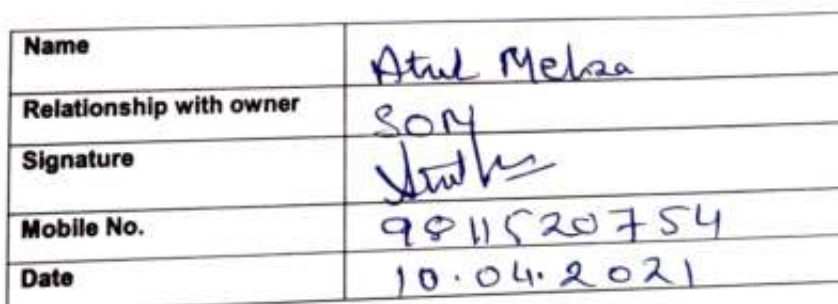 Name Atul Mehra
Relationship with owner SON
Signature
Mobile No. 9811520754
Date 10.04.2021